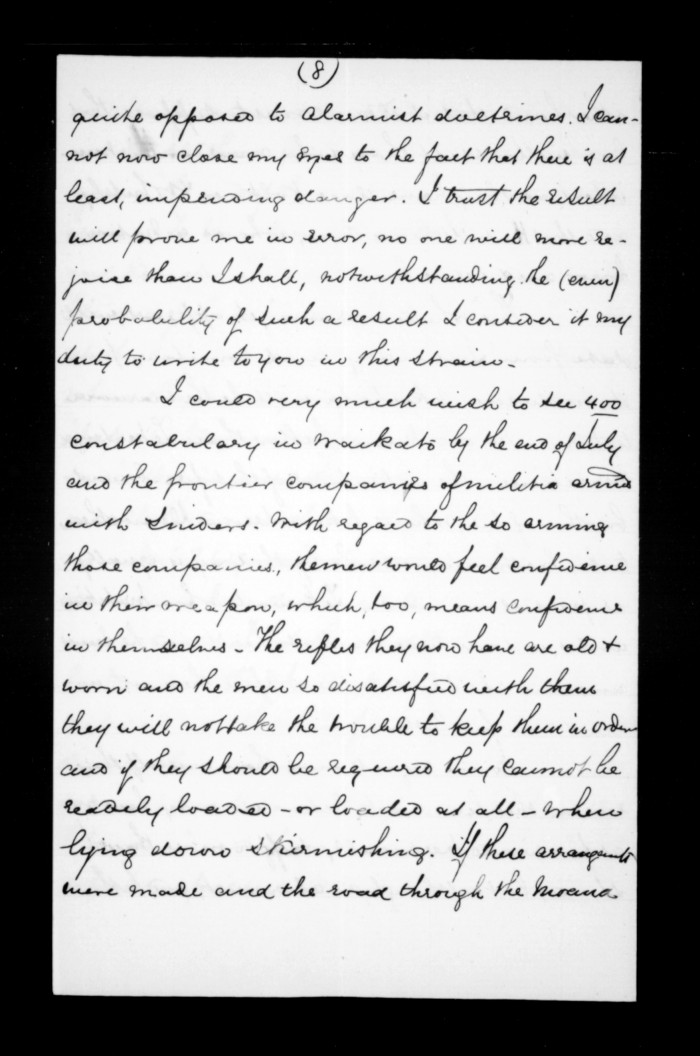 (8)
quite opposed to alarmist doctrines. I can-
not now close my eyes to the fact that there is at
least, impending danger. I trust the result
will prove me in error, no one will more re-
joice than I shall, notwithstanding the (even)
probability of such a result I consider it my
duty to write to you in this strain -
I could very much wish to see 400
constabulary in Waikato by the end of July
and the frontier companies of militia armed
with Sniders. With regard to the so arming
those companies, the men would feel confidence
in their weapon, which, too, means confidence
in themselves - The rifles they now have are old +
worn and the men so disatisfied with them
they will not take the trouble to keep them in order
and if they should be required they cannot be
readily loaded - or loaded at all - when
lying down skirmishing. If these arrangements
were made and the road through the Moana